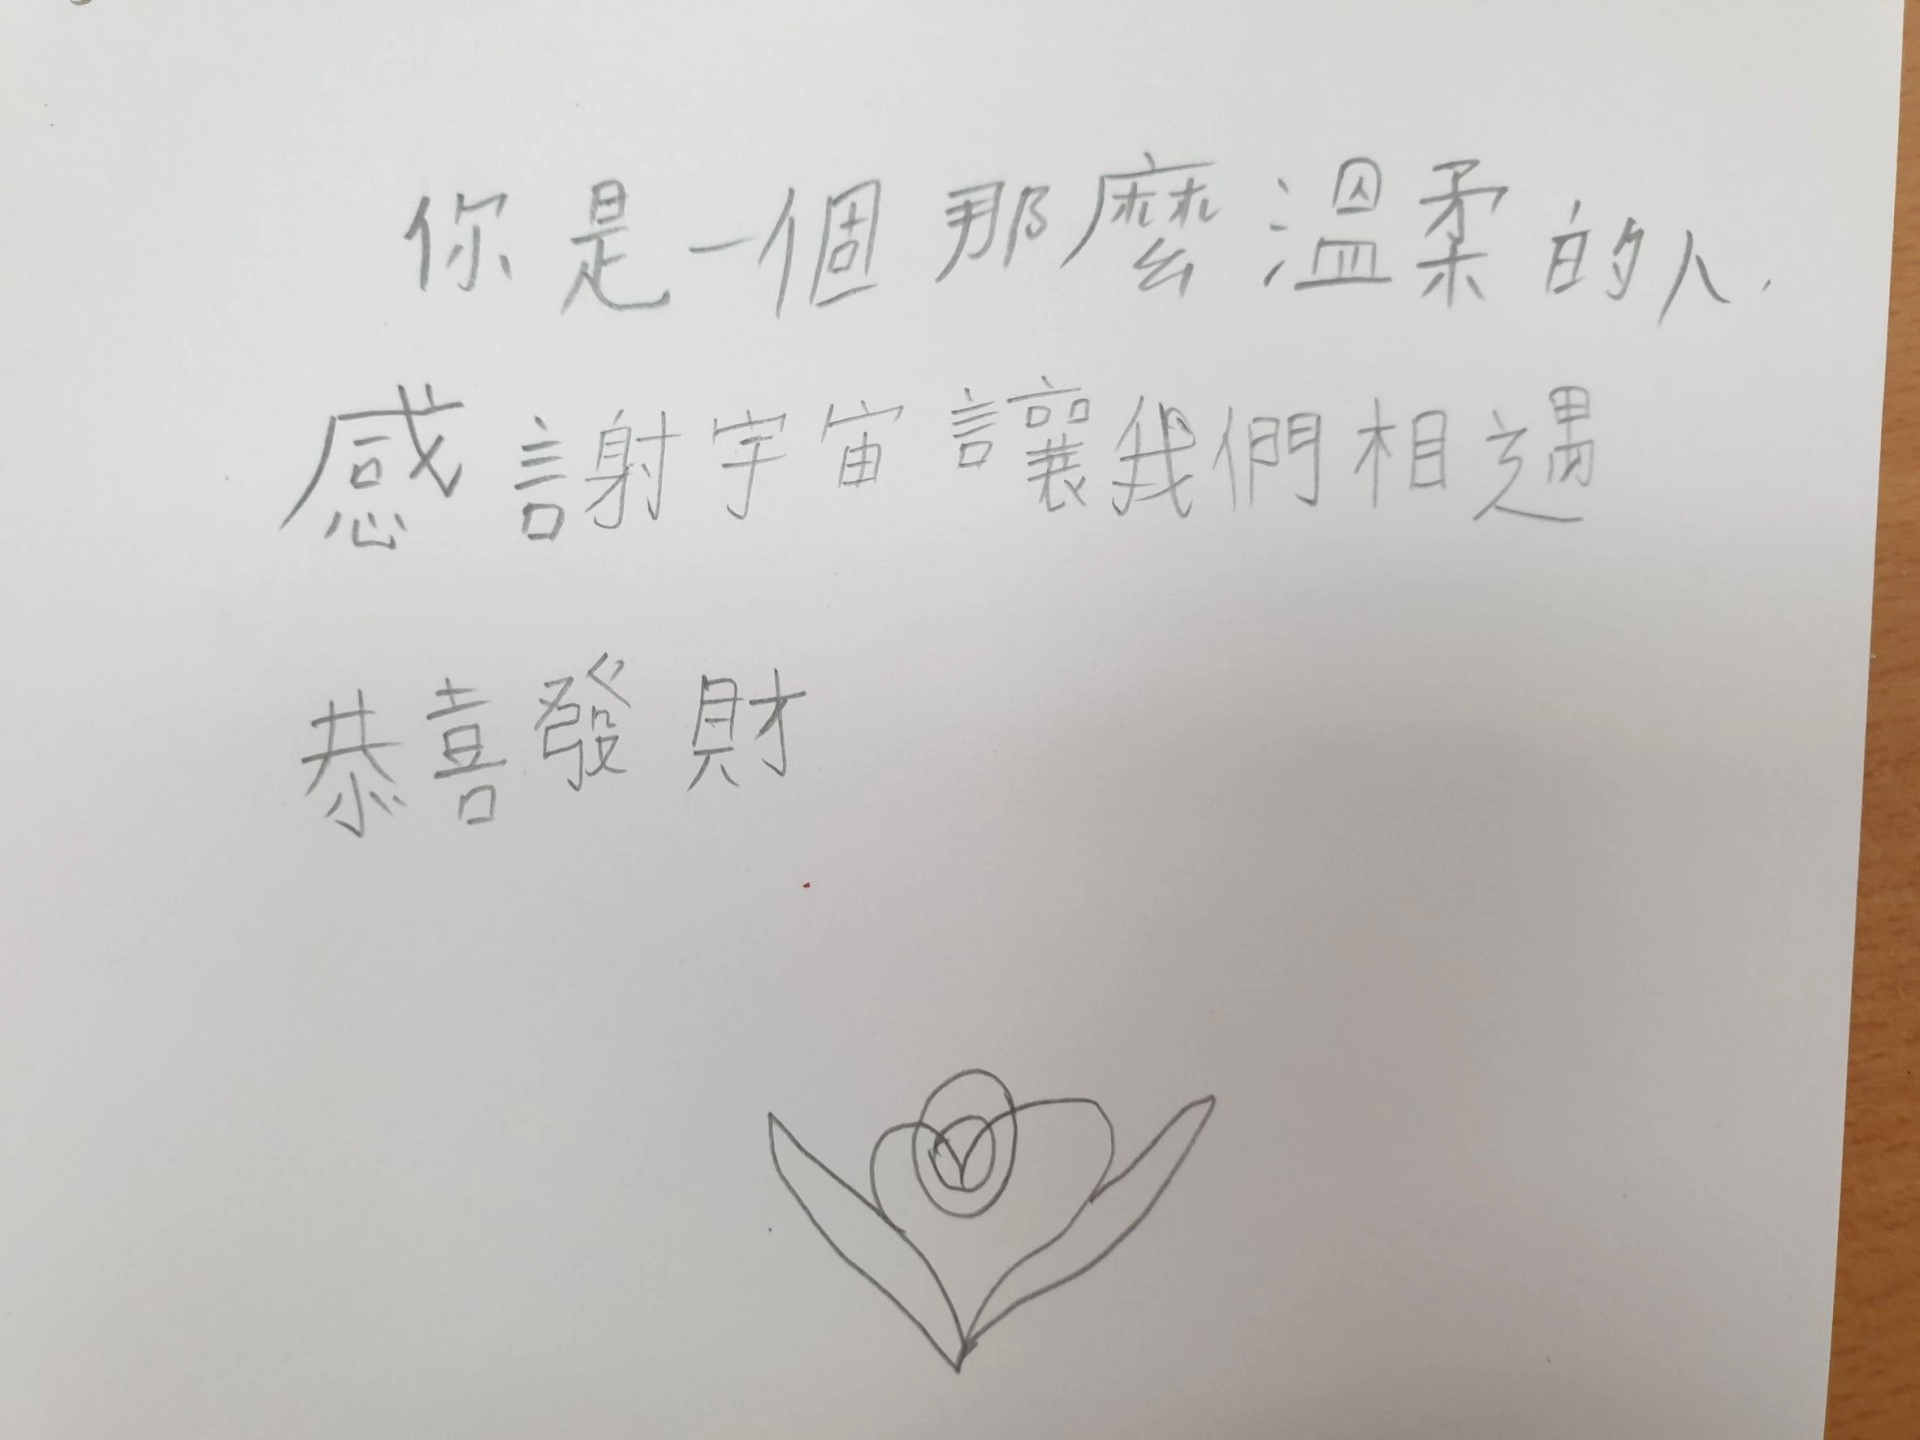 你是一個那麼溫柔的人.
感謝宇宙讓我們相遇
恭喜發財